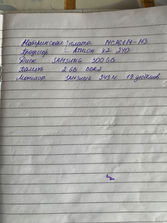 Материнская плата MCP61M-M3
Процессор ATHLON X2 240
Диск SAMSUNG 500 GB
Память 2 GB DDR2
Монитор SAMSUNG 943N 19 дюймов